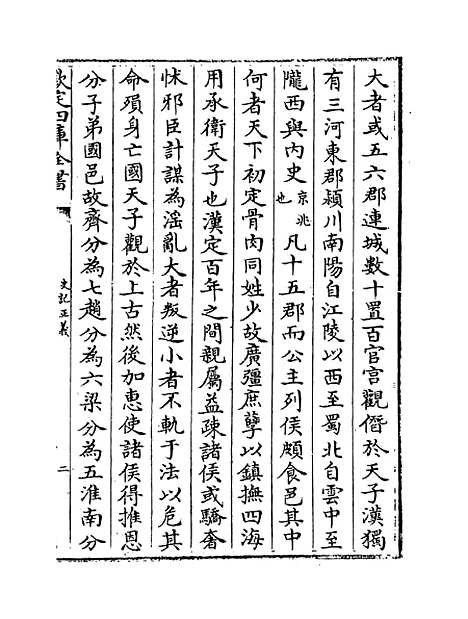 大者或五六郡連城數十置百官宫觀僭於天子漢獨
有三河東郡潁川南陽自江陵以西至蜀北自雲中至
隴西與内史京兆也凡十五郡而公主列侯頗食邑其中
何者天下初定骨肉同姓少故廣彊庶孽以鎮撫四海
用承衛天子也漢定百年之間親屬益疎諸侯或驕奢
怵邪臣計謀為滛亂大者叛逆小者不軌于法以危其
命殞身亡國天子觀於上古然後加惠使諸侯得推恩
分子弟國邑故齊分為七趙分為六梁分為五淮南分
欽定四庫全書
史記正義
二